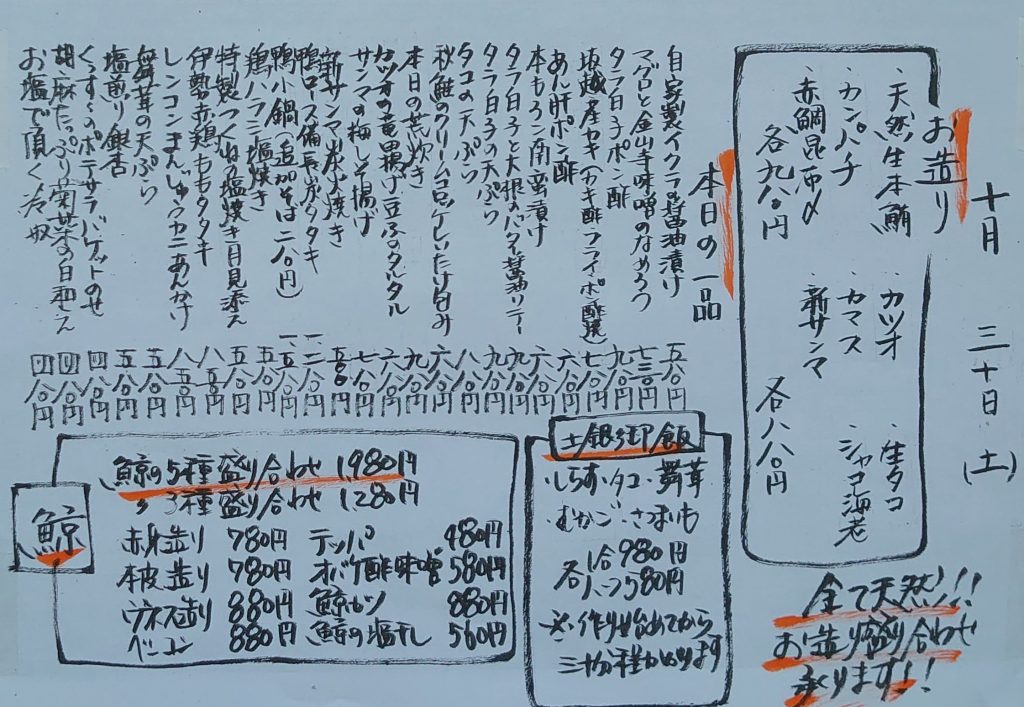 十月 三十日(土)
お造り
・天然生本鮪 ・カツオ ・生タコ
・カンパチ ・カマス ・シャコ海老
・赤鯛昆布〆 ・新サンマ
各九八〇円 各八八〇円
全て天然!!
お造り盛り合わせ
承ります!!
本日の一品
自家製イクラの醤油漬け 五八〇円
マグロと金山寺味噌のなめろう 七三〇円
タラ白子ポン酢 九八〇円
坂越産カキ(カキ酢・フライ・ポン酢焼) 七八〇円
あん肝ポン酢 六八〇円
本もろこ南蛮漬け 六八〇円
タラ白子と大根のバター醤油ソテー 九八〇円
タラ白子の天ぷら 九八〇円
タコの天ぷら 八八〇円
秋鮭のクリームコロッケしいたけ包み 六八〇円
本日の荒炊き 九八〇円
カツオの竜田揚げ豆ふのタルタル 六八〇円
サンマの梅しそ揚げ 七八〇円
新サンマ炭火焼き
鴨ロース備長炭タタキ 一二八〇円
鴨小鍋(追加そば二八〇円) 一五八〇円
鶏ハラミ塩焼き 五八〇円
特製つくねの塩焼き月見添え 五八〇円
伊勢赤鶏ももタタキ 八八〇円
レンコンまんじゅうカニあんかけ 八五〇円
舞茸の天ぷら 五五〇円
塩煎り銀杏 五八〇円
くんすーのポテサラバケットのせ 四八〇円
胡麻たっぷり菊菜の白和え 四八〇円
お塩で頂く冷奴 四八〇円
土銀御飯
・しらす・タコ・舞茸
・むかご・さつまいも
各1合980円
各ハーフ580円
※作り始めてから
三十分程かかります
鯨
鯨の5種盛り合わせ 1980円
〃 3種盛り合わせ 1280円
赤身造り 780円 テッパ 480円
本皮造り 780円 オバケ酢味噌 580円
ウネス造り 880円 鯨カツ 880円
ベーコン 880円 鯨の塩干し 560円